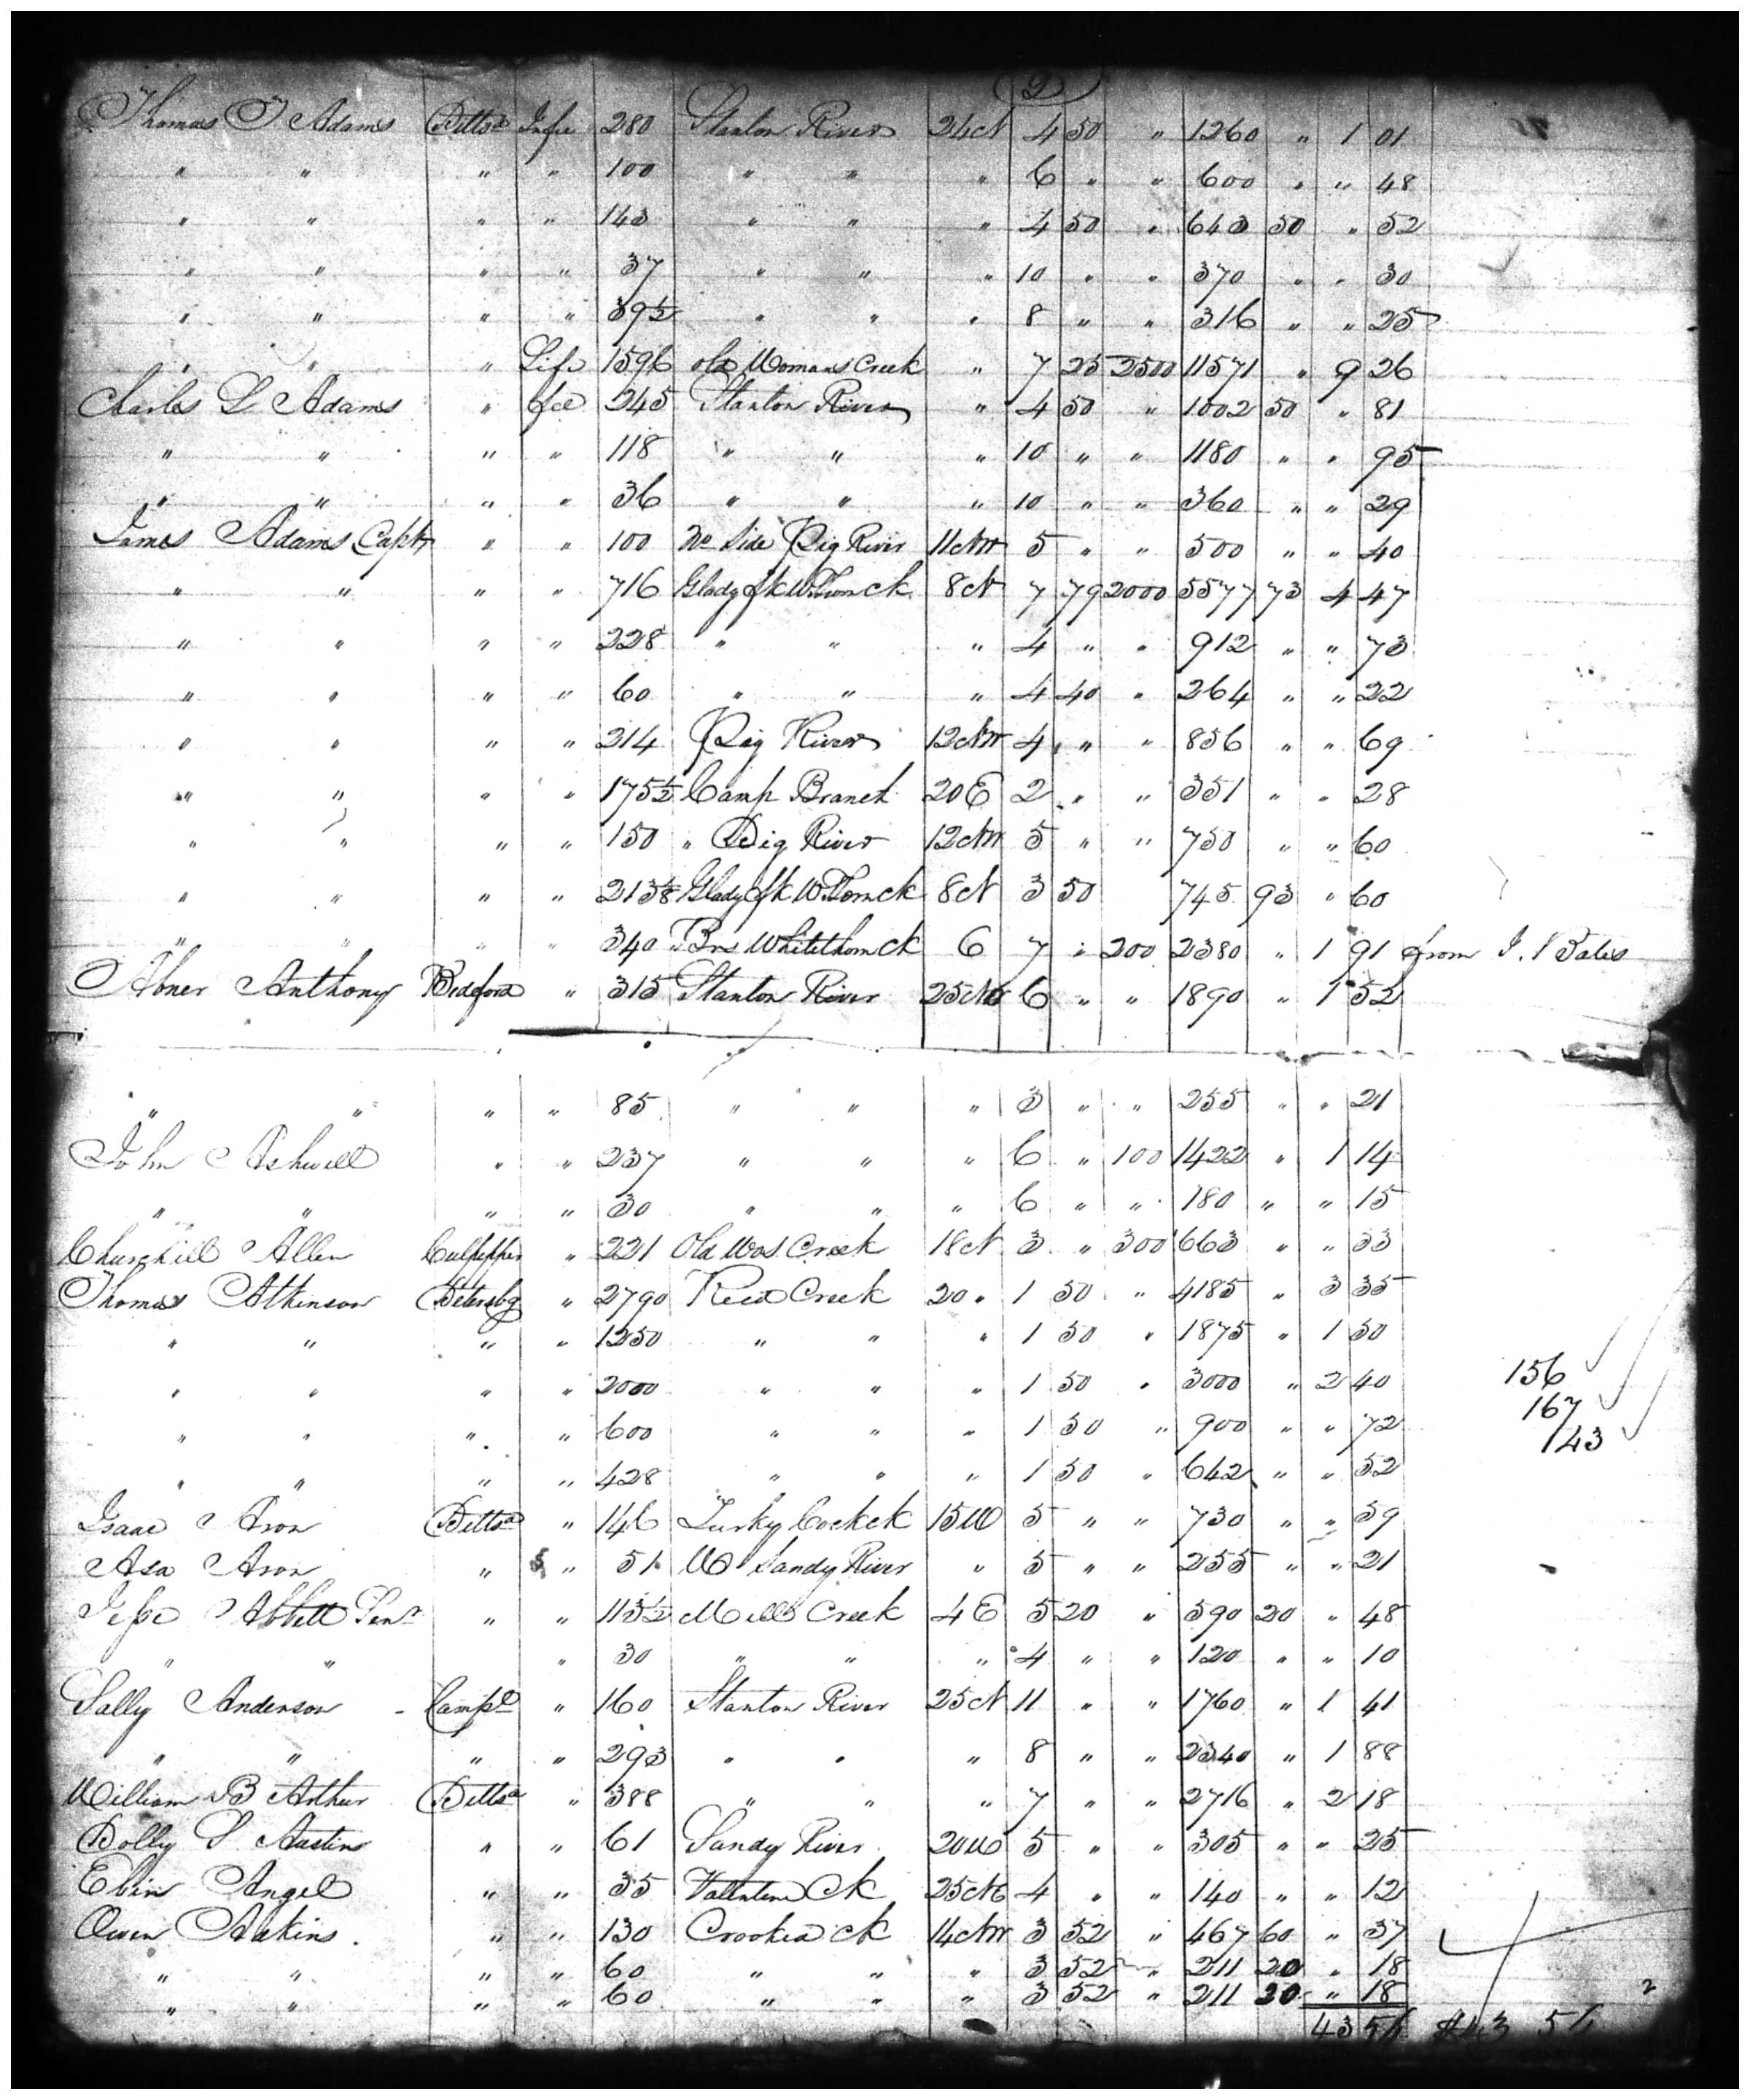 2
Thomas T Adams Pittsa Infee 280 Stanton River 24 N 4 50 " 1260 " 1 01
" " " " 100 " " " 6 " " 600 " " 48
" " " " 143 " " " 4 50 " 643 50 " 52
" " " " 37 " " " 10 " " 370 " " 30
" " " " 39½ " " " 8 " " 316 " " 25
" " " Life 1596 old Womans Creek " 7 25 2500 11571 " 9 26
Charles L Adams " fee 245 Stanton River " 4 50 " 1002 50 " 81
" " " " 118 " " " 10 " " 1180 " " 95
" " " " 36 " " " 10 " " 360 " " 29
James Adams Capt " " 100 No Side Pig River 11 NW 5 " " 500 " " 40
" " " " 716 Glady fk W.Thorn ck 8 N 7 79 2000 5577 73 4 47
" " " " 228 " " " 4 " " 912 " " 73
" " " " 60 " " " 4 40 " 264 " " 22
" " " " 214 Pig River 12 NW 4 " " 856 " " 69
" " " " 175½ Camp Branch 20 E 2 " " 351 " " 28
" " " " 150 " Pig River 12 NW 5 " " 750 " " 60
" " " " 213⅛ Glady fk W Thorn ck 8 N 3 50 745 93 " 60
" " " " 340 Brs Whitethorn ck 6 7 " 200 2380 " 1 91 from J. Bates
Abner Anthony Bedford " 315 Stanton River 25 NE 6 " " 1890 " 1 52
" " " " 85 " " " 3 " " 255 " " 21
John Ashwell " " 237 " " " 6 " 100 1422 " 1 14
" " " " 30 " " " 6 " " 180 " " 15
Churchill Allen Culpepper " 221 Old Wos Creek 18 N 3 " 300 663 " " 33
Thomas Atkinson Petersbg " 2790 Reed Creek 20 " 1 50 " 4185 " 3 35
" " " " 1250 " " " 1 50 " 1875 " 1 50
" " " " 2000 " " " 1 50 " 3000 " 2 40
156
" " " " 600 " " " 1 50 " 900 " " 72
167
143
" " " " 428 " " " 1 50 " 642 " " 52
Isaac Aron Pittsa " 146 Turky Cock ck 15 W 5 " " 730 " " 59
Asa Aron " " 51 W Sandy River " 5 " " 255 " " 21
Jesse Abbett Senr " " 113½ Mill Creek 4 E 5 20 " 590 20 " 48
" " " 30 " " " 4 " " 120 " " 10
Sally Anderson - Campl " 160 Stanton River 25 N 11 " " 1760 " 1 41
" " " " 293 " " " 8 " " 2340 " 1 88
William B Arthur Pittsa " 388 " " " 7 " " 2716 " 2 18
Dolly S Austin " " 61 Sandy River 20 W 5 " " 305 " " 25
Ebin Angel " " 35 Vallentine Ck 25 NE 4 " " 140 " " 12
Owen Adkins " " 130 Crooked ck 14 NW 3 52 " 467 60 " 37
" " " " 60 " " " 3 52 " 211 20 " 18
" " " " 60 " " " 3 52 " 211 20 " 18
2
43 54 $43 54